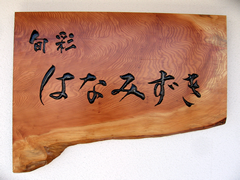 旬彩
はなみずき